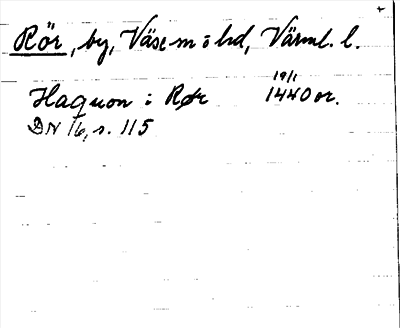 +
Rör, by, Väse m o hd, Värml. l.
Haquon i Rør 19/1 1440 or.
DN 16, s. 115